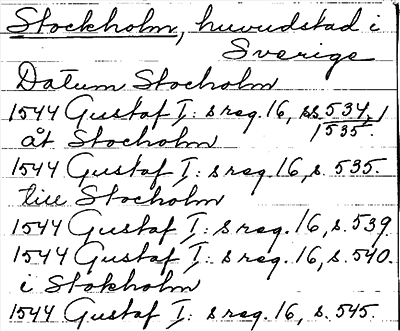 Stockholm, huvudstad i
Sverige
Datum Stocholm
1544 Gustaf I: s reg. 16, ss 534, 1
1535.
åt Stocholm
1544 Gustaf I: s reg. 16, s. 535.
till Stocholm
1544 Gustaf I: s reg. 16, s. 539.
1544 Gustaf I: s reg. 16, s. 540.
i Stokholm
1544 Gustaf I: s reg. 16, s. 545.